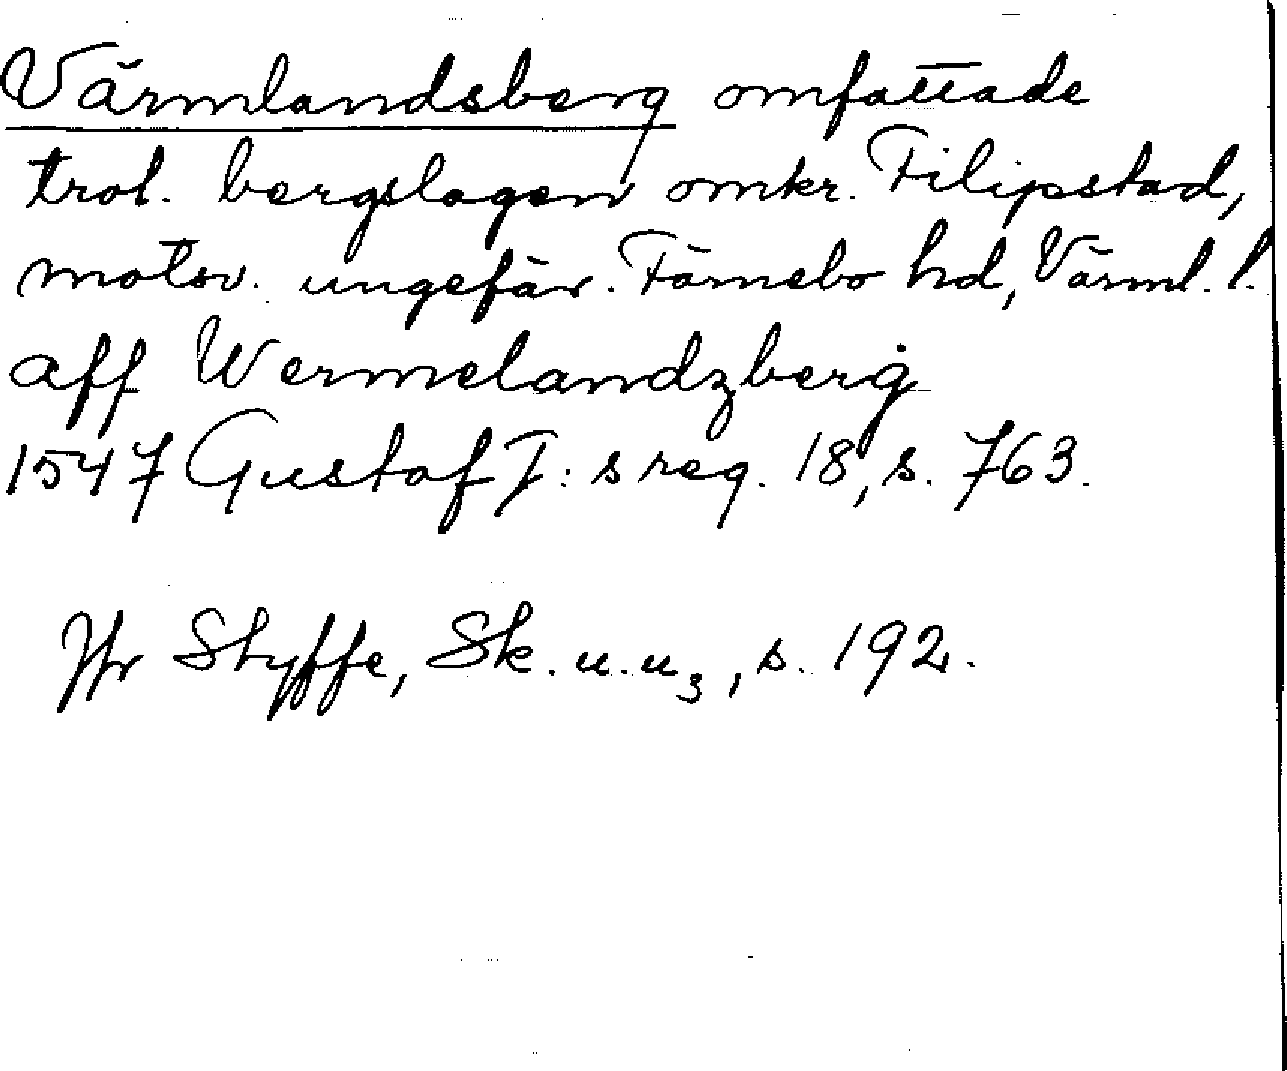 Värmlandsberg omfattade
trol. bergslagen omkr. Filipstad,
motsv. ungefär. Färnebo hd, Värml. l.
aff Wermelandzberg
1547 Gustaf I:s reg. 18, s. 763.
Jfr Styffe, Sk. u. u3, s. 192.